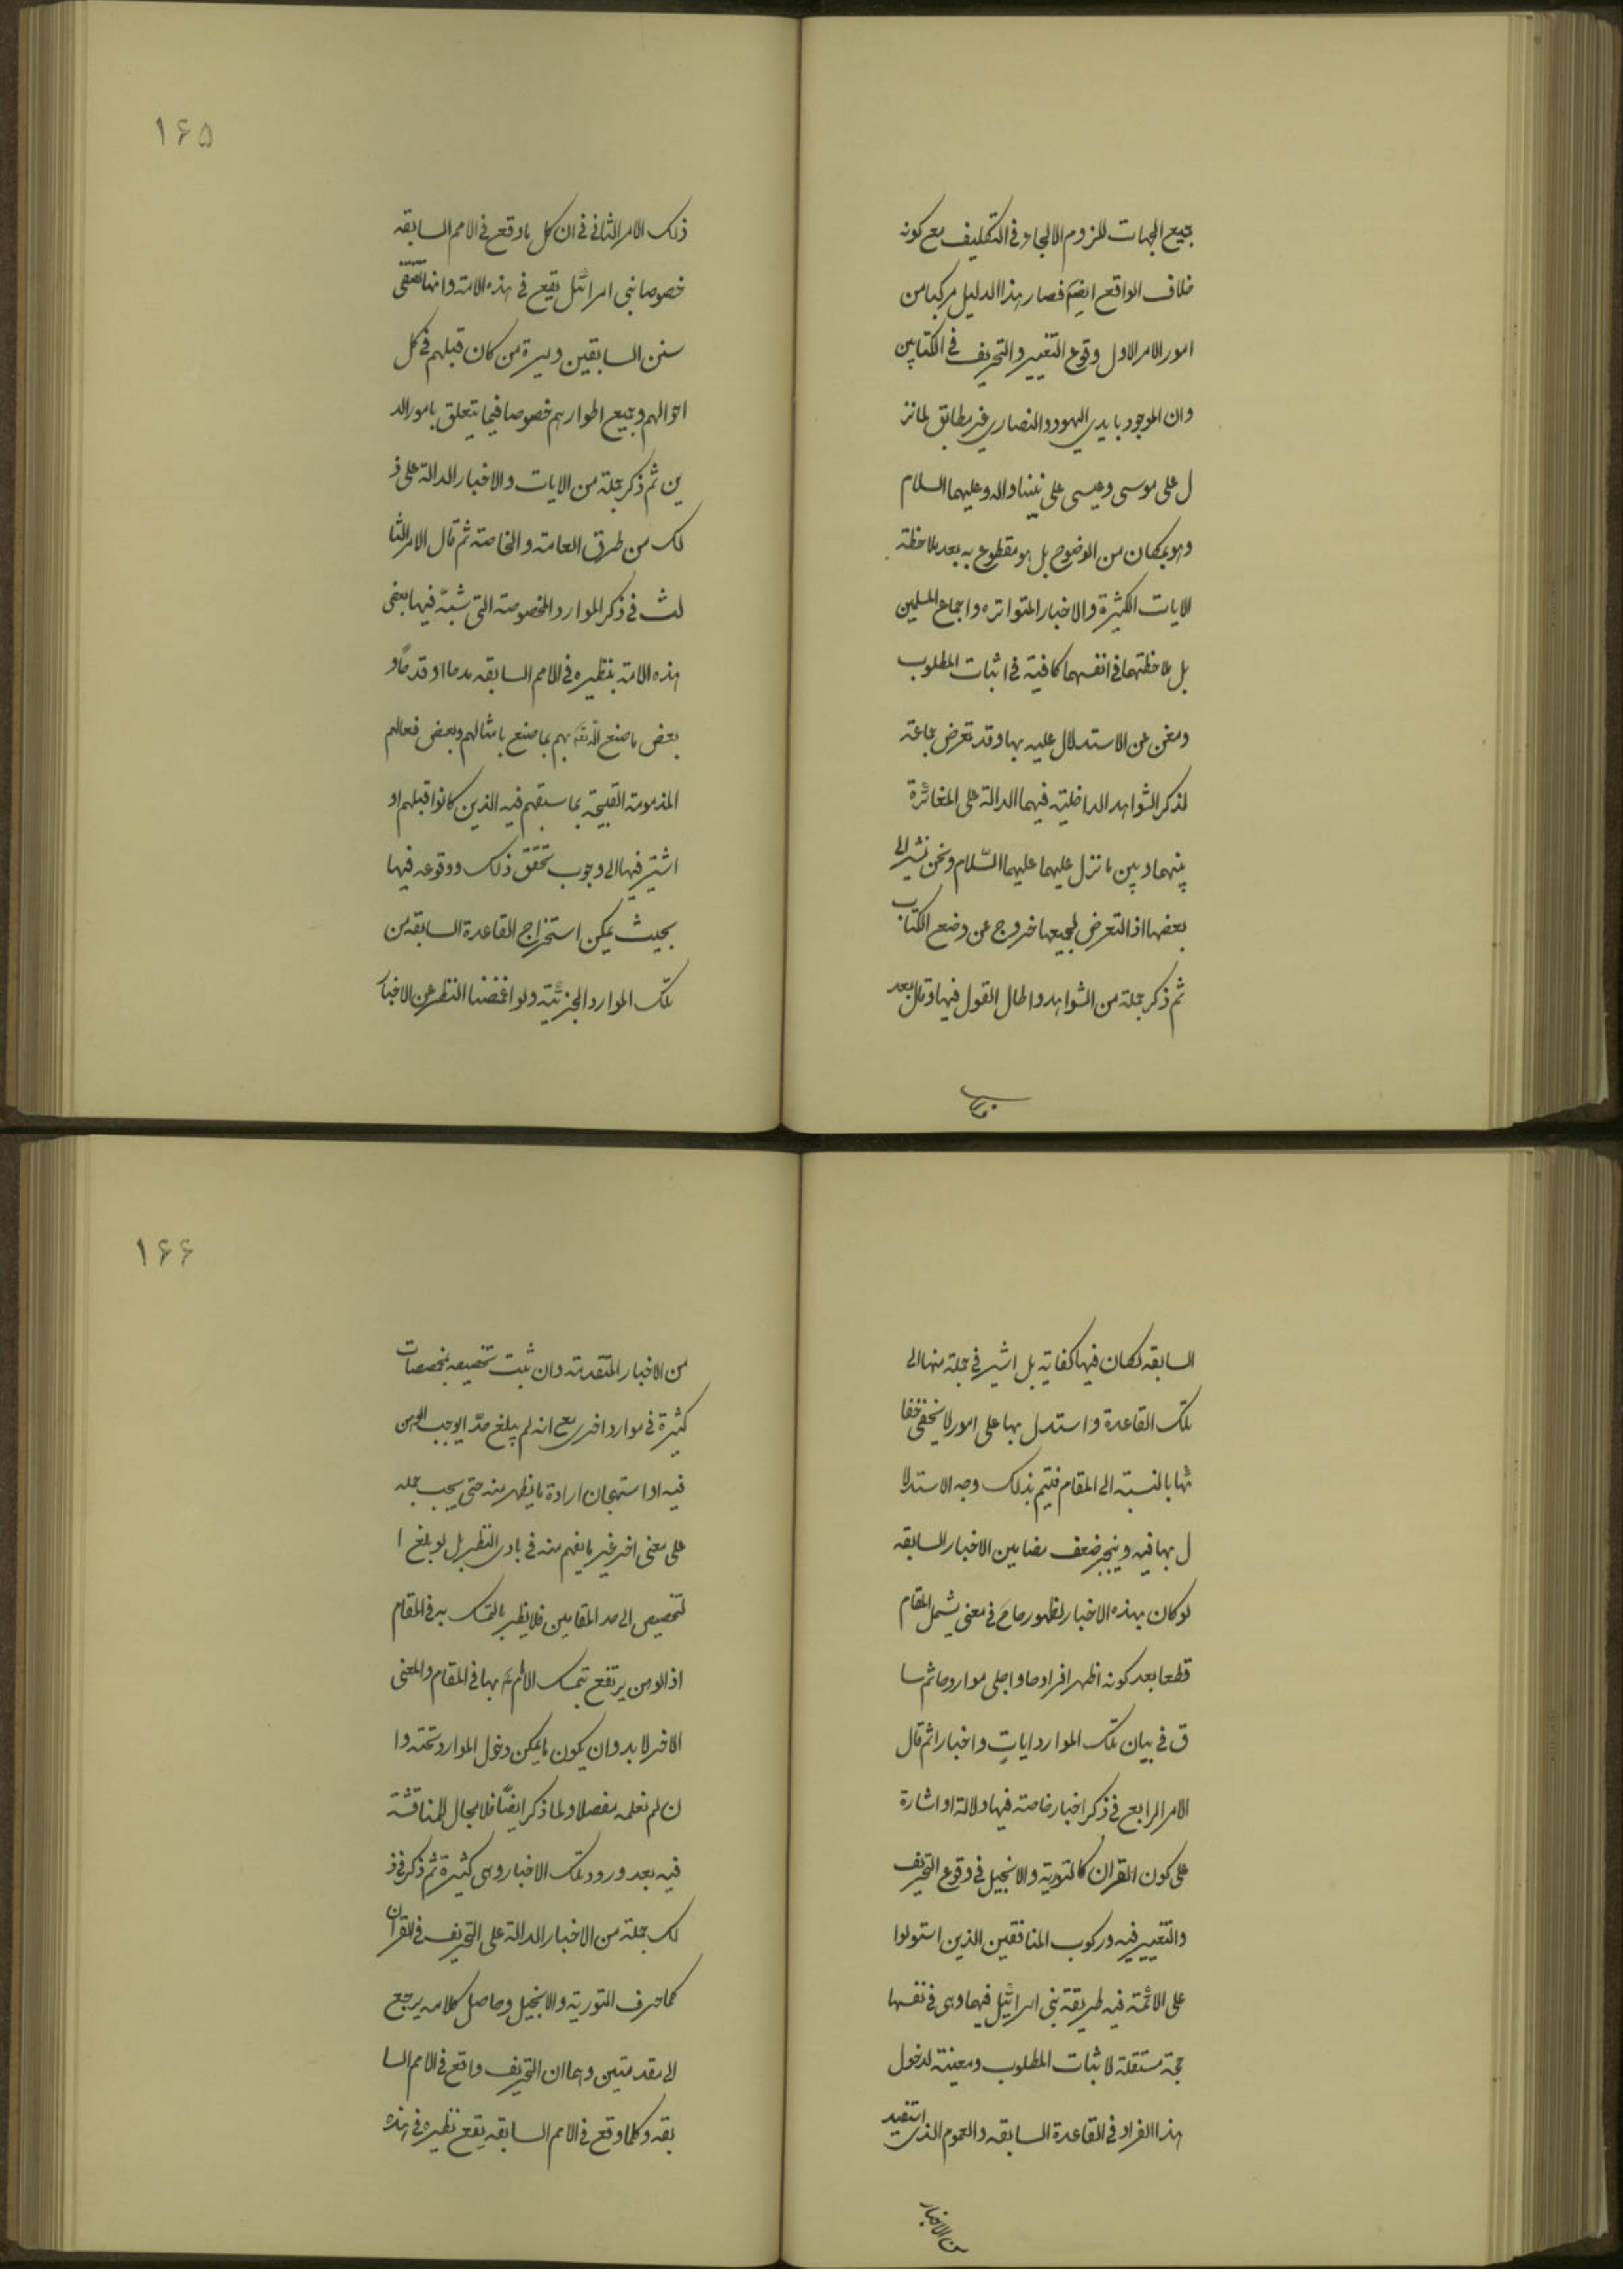 جميع الجهات للزوم الالجاء فى التكليف مع كونه
خلاف الواقع ايضا فصار هذا الدليل مركبا من
امور الامر الاول وقوع التغيير والتحريف فى الكتابين
وان الموجود بايدى اليهود والنصارى غير مطابق لما نز
ل على موسى وعيسى على نبينا واله وعليهما السلام
وهو بمكان من الوضوح بل هو مقطوع به بعد ملاحظة
الايات الكثيرة والاخبار المتواتره واجماع المسلمين
بل ملاحظتهما فى انفسهما كافية فى اثبات المطلوب
ومغن عن الاستدلال عليه بها وقد تعرض جماعة
لذكر الشواهد الداخلية فيهما الدالة على المغائرة
بينهما وبين ما نزل عليهما عليهما السّلام ونحن نشير الى
بعضها اذ التعرض لجميعها خروج عن وضع الكتاب
ثم ذكر جملة من الشواهد واطال القول فيها وقال بعد
ذلك
١۶۵
ذلك الامر الثانى فى ان كل ما وقع فى الامم السابقه
خصوصا بنى اسرائيل يقع فى هذه الامة وانها تقتفى
سنن السابقين وسيرة من كان قبلهم فى كل
احوالهم وجميع اطوارهم خصوصا فيما يتعلق بامور الد
ين ثم ذكر جملة من الايات والاخبار الدالة على ذ
لك من طرق العامة والخاصة ثم قال الامر الثا
لث فى ذكر الموارد المخصوصة التى شبّه فيها بعض
هذه الامة بنظيره فى الامم السابقه مدحا او قدحًا و
بعض ما صنع الله بهم بما صنع بامثالهم وبعض فعالهم
المذمومة القبيحة بما سبقهم فيه الذين كانوا قبلهم او
اشير فيها الى وجوب تحقق ذلك ووقوعه فيها
بحيث يمكن استخراج القاعدة السابقه من
تلك الموارد الجزئية ولو اغمضنا النظر عن الاخبار
السابقه لكان فيها كفاية بل اشير فى جملة منها الى
تلك القاعدة واستدل بها على امور لا يخفى خفا
ئها بالنسبة الى المقام فيتم بذلك وجه الاستدلا
ل بها فيه وينجبر ضعف مضامين الاخبار السابقه
لو كان بهذه الاخبار لظهورها ح فى معنى يشمل المقام
قطعا بعد كونه اظهر افرادها واجلى مواردها ثم سا
ق فى بيان تلك الموارد ايات واخبارا ثم قال
الامر الرابع فى ذكر اخبار خاصة فيها دلالة او اشارة
على كون القران كالتورية والانجيل فى وقوع التحريف
والتغيير فيه وركوب المنافقين الذين استولوا
على الائمة فيه طريقة بنى اسرائيل فيهما وهى فى نفسها
حجة مستقلة لاثبات المطلوب ومعينة لدخول
هذا الفراد فى القاعدة السابقه والعموم الذى استفيد
من الاخبار
١۶۶
من الاخبار المتقدمة وان ثبت تخصيصه بمخصصات
كثيرة فى موارد اخرى مع انه لم يبلغ حدّ ايوجب الوهن
فيه او استهجان ارادة ما يظهر منه حتى يجب حمله
على معنى اخر غير ما يفهم منه فى بادى النظر بل لو بلغ ا
لتخصيص الى حد المقامين فلا يضر بالتمسك به فى المقام
اذ الوهن يرتفع بتمسك الامام بها فى المقام والمعنى
الاخر لا بد وان يكون ما يمكن دخول الموارد تحته وا
ن لم نعلمه مفصلا ولما ذكر ايضًا فلا مجال للمناقشة
فيه بعد ورود تلك الاخبار وهى كثيرة ثم ذكر فى ذ
لك جملة من الاخبار الدالة على التحريف فى القران
كما حرف التورية والانجيل وحاصل كلامه يرجع
الى مقدمتين وهما ان التحريف واقع فى الامم السا
بقه وكلما وقع فى الامم السابقه يقع نظيره فى هذه